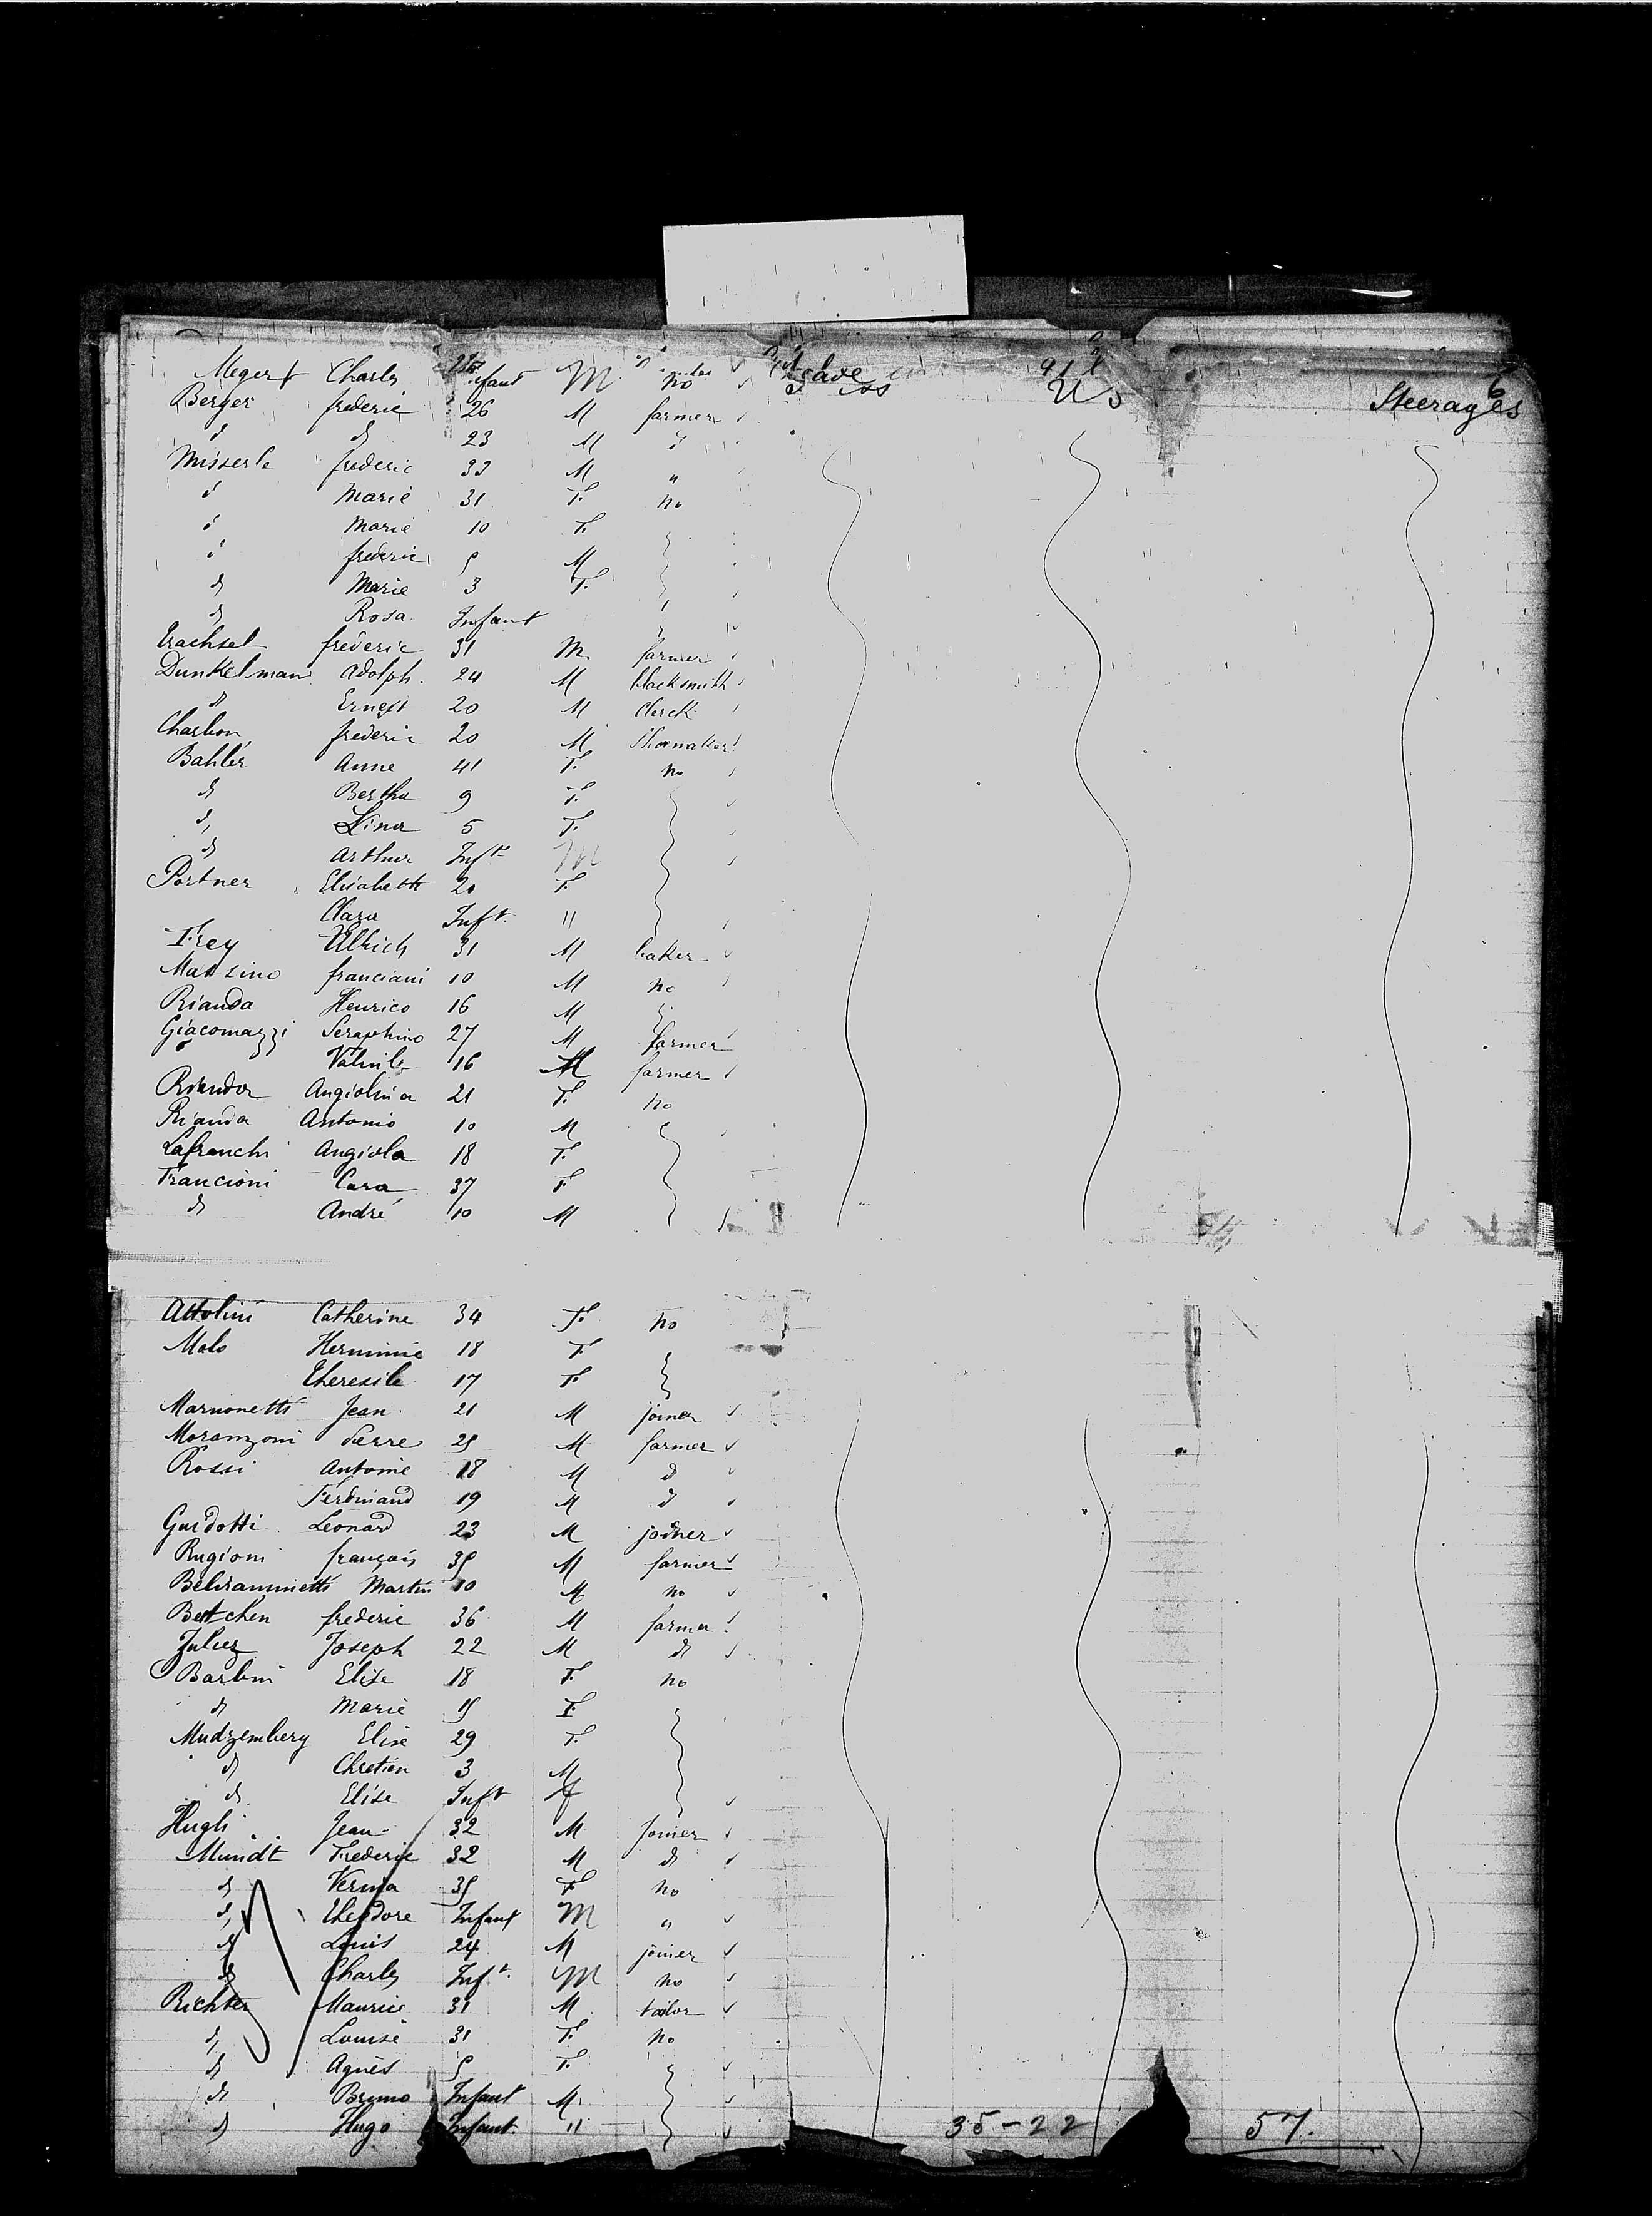 6
Meger Charles Infant M no U S Steerages
Berger frederic 26 M farmer
d d 23 M d
Misserle frederic 33 M "
d Marie 31 F. no
d Marie 10 F.
d frederic 5 M
d Marie 3 F.
d Rosa Infant
Trachsel frederic 31 M. farmer
Dunkelman Adolph. 24 M blacksmith
d Ernest 20 M Clerck
Charbon frederic 20 M Shoemaker
Bahler Anne 41 F. no
d Bertha 9 F.
d, Lina 5 F.
d Arthur Inft M
Portner Elisabeth 20 F.
Clara Inft. "
Frey Ullrich 31 M baker
Massino franciani 10 M no
Rianda Henrico 16 M
Giacomazzi Seraphino 27 M farmer
d 16 M farmer
Rianda Angiolina 21 F. no
Rianda Antonio 10 M
Lafranchi Angiola 18 F.
Francioni Cara 37 F
d André 10 M
Attolini Catherine 34 F. no
Malo Herminie 18 F.
Theresile 17 F.
Marnonetti Jean 21 M joiner
Moranzoni Pierre 25 M farmer
Rossi Antoine 18 M d
Ferdinand 19 M d
Guidotti Leonard 23 M joiner
Rugioni françois 35 M farmer
Beltramminetti Martin 10 M no
Bettchen frederic 36 M farmer
Juliez Joseph 22 M d
Barbini Elise 18 F. no
d Marie 15 F.
Mudzemberg Elise 29 F.
d Chretien 3 M
d Elise Inft f
Hugli Jean 32 M Joiner
Mundt Frederic 32 M d
d Verma 35 F no
d, Theodore Infant M "
d Louis 24 M joiner
d Charles Inft. M no
Richter Maurice 31 M. tailor
d, Louise 31 F. no
d Agnes 5 F.
d Bruno Infant M
d Hugo Infant. "
35-22 57.